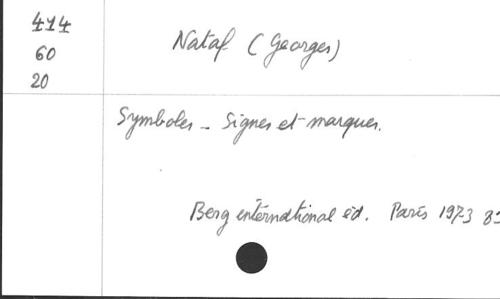 414
60
20
Nataf (Georges)
Symboles - Signes et marques.
Berg international éd. Paris 1973